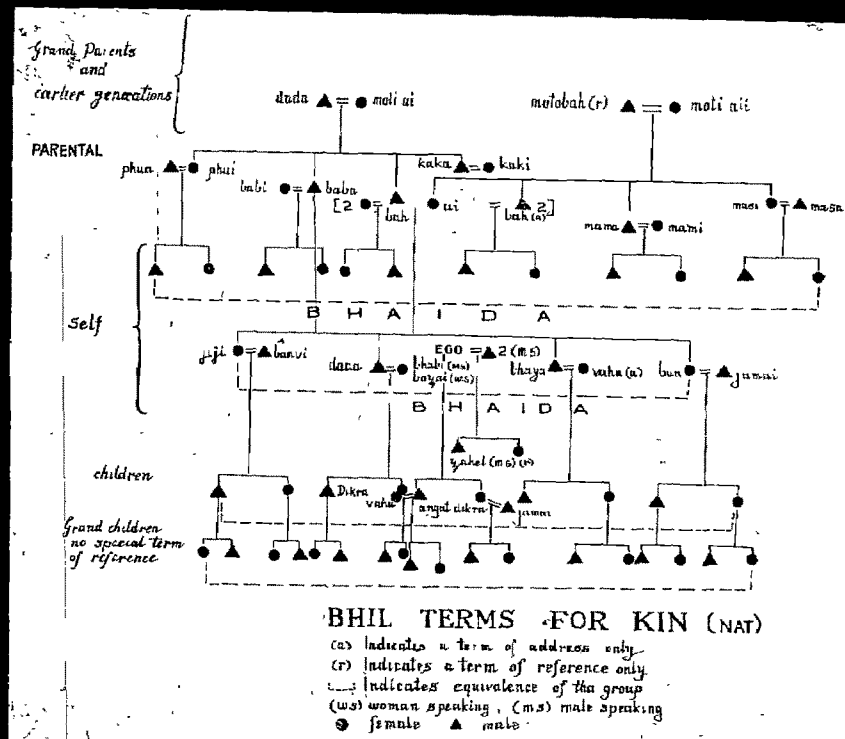 Grand Parents
and
earlier generations
dada = moti ai
motobah (r) = moti aii
PARENTAL
phua = phui
kaka = kaki
babi = baba
[2 = bah
ai
= bah (a) 2]
masi = masa
mama = mami
Self
B H A I D A
jiji = banvi
dada =
bhabi (ms)
bayai (ws)
EGO = 2 (ms)
bhaya = vahu (a)
bun = jamai
B H A I D A
yahel (ms) (r)
children
Dikra
vahu
angat dikra
jamai
Grand children
no special term
of reference
BHIL TERMS FOR KIN (NAT)
(a) Indicates a term of address only
(r) Indicates a term of reference only
Indicates equivalence of the group
(ws) woman speaking, (ms) male speaking
female male